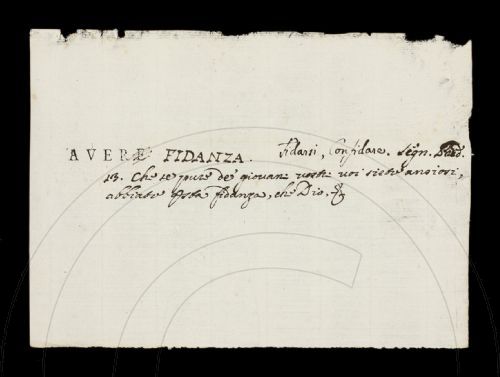 AVERE FIDANZA. Fidarsi, Confidare. Segn.
13. Che se pure de' giovani vostri voi siete ansiosi,
abbiate questa fidanza, che Dio. &